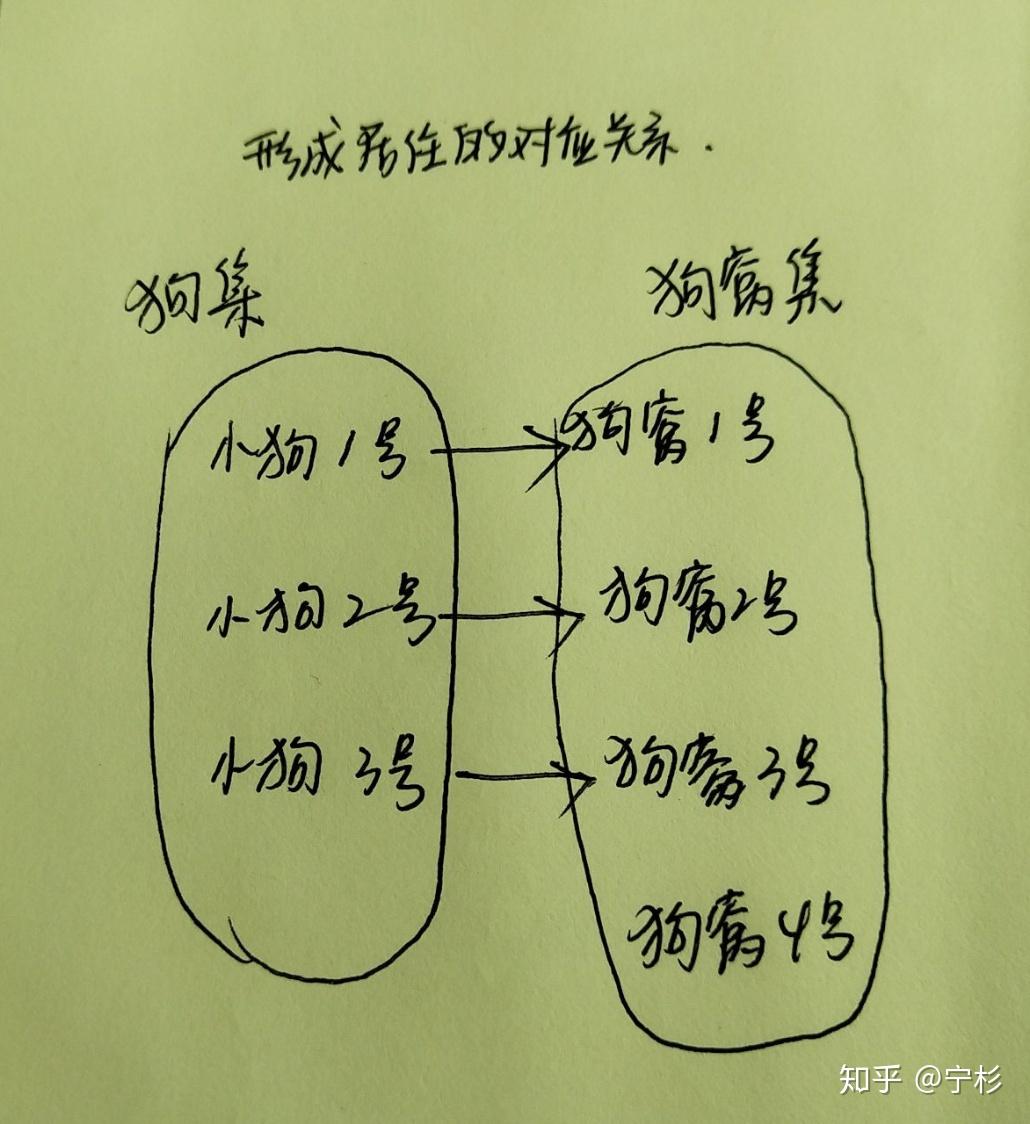 形成居住的对应关系.
狗集 狗窝集
小狗1号 狗窝1号
小狗2号 狗窝2号
小狗3号 狗窝3号
狗窝4号
知乎 @宁杉